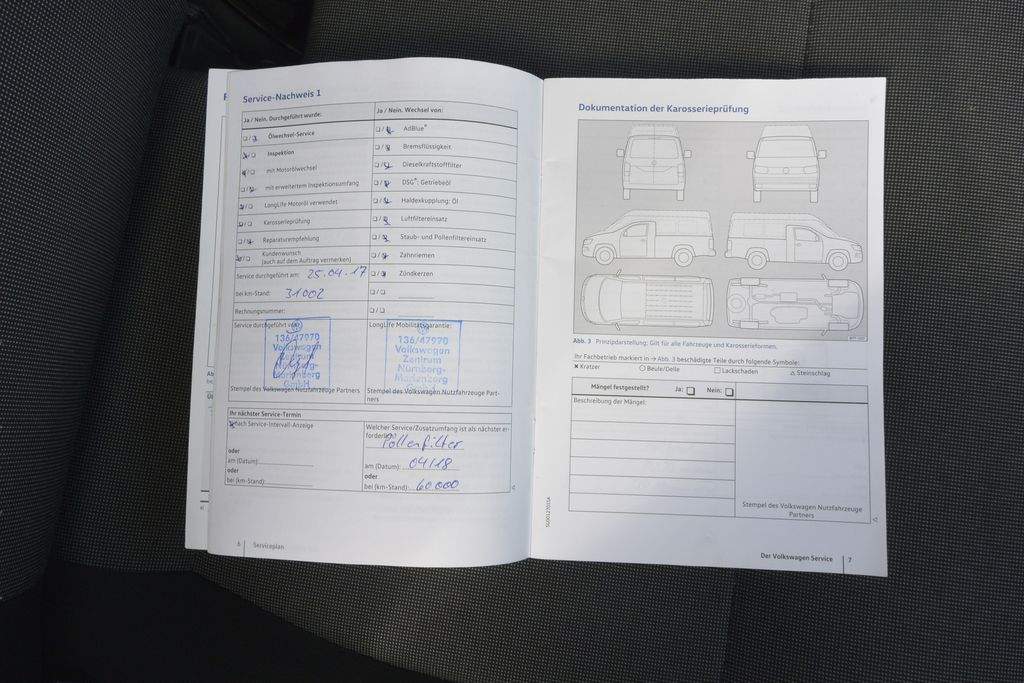 Service-Nachweis 1
Ja / Nein. Durchgeführt wurde:
Ja / Nein. Wechsel von:
Ölwechsel-Service
AdBlue®
Inspektion
Bremsflüssigkeit
mit Motorölwechsel
Dieselkraftstofffilter
mit erweitertem Inspektionsumfang
DSG®: Getriebeöl
LongLife Motoröl verwendet
Haldexkupplung: Öl
Karosserieprüfung
Luftfiltereinsatz
Reparaturempfehlung
Staub- und Pollenfiltereinsatz
Kundenwunsch
(auch auf dem Auftrag vermerken)
Zahnriemen
Service durchgeführt am: 25.04.17
Zündkerzen
bei km-Stand: 31002
Rechnungsnummer:
Service durchgeführt von:
LongLife Mobilitätsgarantie:
136/47970
Volkswagen
Zentrum
Nürnberg-
Marienberg
GmbH
136/47970
Volkswagen
Zentrum
Nürnberg-
Marienberg
Stempel des Volkswagen Nutzfahrzeuge Partners
Stempel des Volkswagen Nutzfahrzeuge Part-
ners
Ihr nächster Service-Termin
nach Service-Intervall-Anzeige
Welcher Service/Zusatzumfang ist als nächster er-
forderlich?
Pollenfilter
oder
am (Datum):
am (Datum): 04/18
oder
oder
bei (km-Stand):
bei (km-Stand): 60000
6 Serviceplan
Dokumentation der Karosserieprüfung
Abb. 3 Prinzipdarstellung: Gilt für alle Fahrzeuge und Karosserieformen.
Ihr Fachbetrieb markiert in → Abb. 3 beschädigte Teile durch folgende Symbole:
Kratzer
Beule/Delle
Lackschaden
Steinschlag
Mängel festgestellt? Ja: Nein:
Beschreibung der Mängel:
Stempel des Volkswagen Nutzfahrzeuge
Partners
Der Volkswagen Service 7